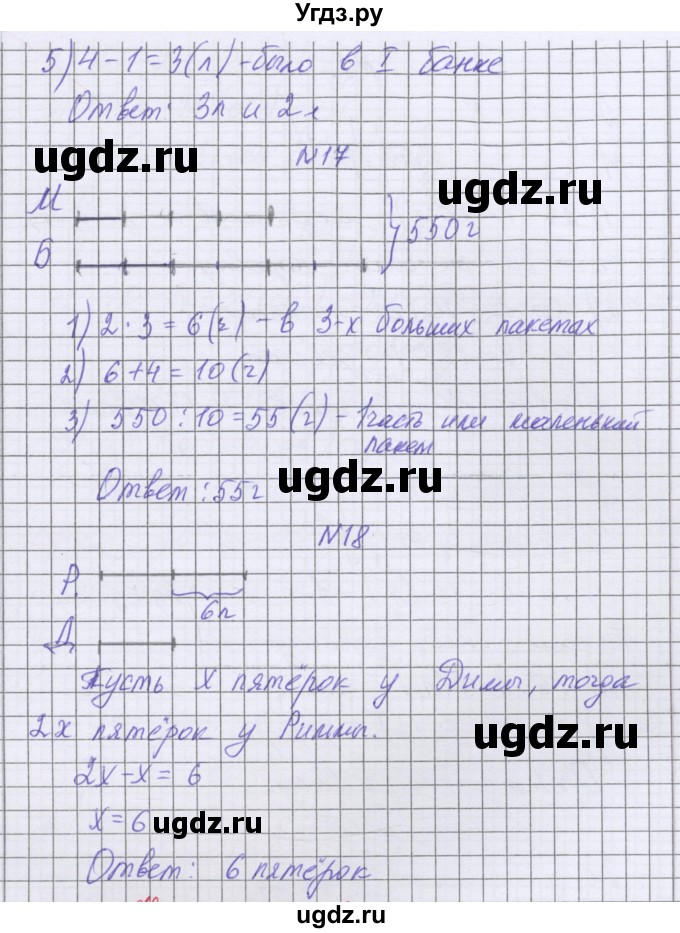 Угдз.ру
5) 4 - 1 = 3 (л) - было в I банке
Ответ: 3л и 2л
ugdz.ru
N17
ugdz.ru
М
Б
550 г
1) 2 · 3 = 6 (г) - в 3-х больших пакетах
2) 6 + 4 = 10 (г)
3) 550 : 10 = 55 (г) - 1 часть или маленький
пакет
Ответ: 55г
ugdz.ru
N18
Р.
6п
Д
Пусть х пятёрок у Димы, тогда
2х пятёрок у Риммы.
ugdz.ru
2х - х = 6
х = 6
ugdz.ru
Ответ: 6 пятёрок
ugdz.ru